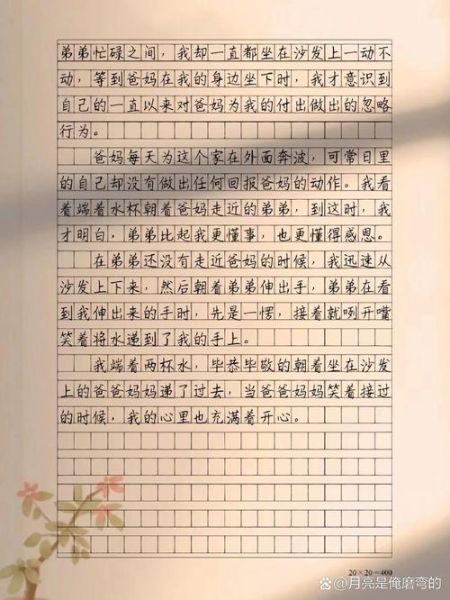 弟弟忙碌之间，我却一直都坐在沙发上一动不
动，等到爸妈在我的身边坐下时，我才意识到
自己的一直以来对爸妈为我的付出做出的忽略
行为。
爸妈每天为这个家在外面奔波，可常日里
的自己却没有做出任何回报爸妈的动作。我看
着端着水杯朝着爸妈走近的弟弟，到这时，我
才明白，弟弟比起我更懂事，也更懂得感恩。
在弟弟还没有走近爸妈的时候，我迅速从
沙发上下来，然后朝着弟弟伸出手，弟弟在看
到我伸出来的手时，先是一愣，接着就咧开嘴
笑着将水递到了我的手上。
我端着两杯水，毕恭毕敬的朝着坐在沙发
上的爸爸妈妈递了过去，当爸爸妈妈笑着接过
的时候，我的心里也充满着开心。
20×20=400
@月亮是俺磨弯的